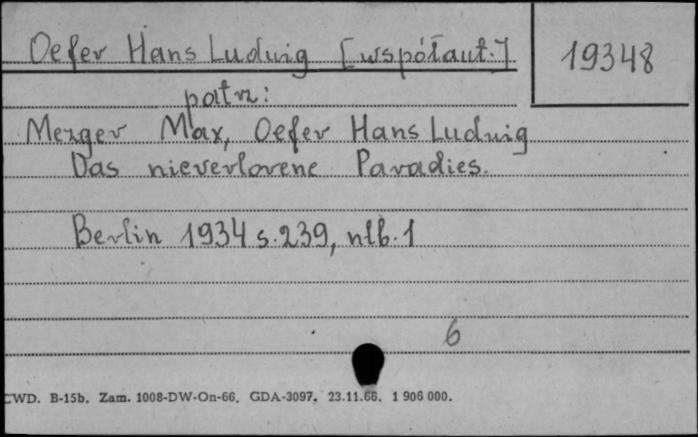 Oefer Hans Ludwig [współaut.]
19348
patrz:
Mezger Max, Oefer Hans Ludwig
Das nieverlorene Paradies.
Berlin 1934 s. 239, nlb. 1
6
CWD. B-15b. Zam. 1008-DW-On-66. GDA-3097. 23.11.66. 1 906 000.